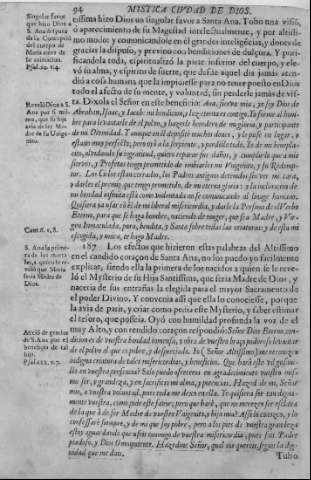 94
MISTICA CIVDAD DE DIOS.
Singular favor
que hizo Dios a
S. Ana despues
de la Concepció
del cuerpo de
Maria antes de
su animacion.
Psal. 20. v. 4.
tissima hizo Dios un singular favor a Santa Ana. Tubo una visió,
ò aparecimiento de su Magestad intelectualmente, y por altissi-
mo modo: y comunicandole en él grandes inteligencias, y dones de
gracias la dispuso, y previno con bendiciones de dulçura. Y puri-
ficandola toda, espiritualizò la parte inferior del cuerpo, y ele-
vó su alma, y espiritu de suerte, que desde aquel dia jamás aten-
dió a cosa humana que la impidiesse para no tener puesto en Dios
todo el afecto de su mente, y voluntad, sin perderle jamás de vis-
Revela Dios a S.
Ana por si mis-
mo, que su hija
hade ser Ma-
dre de su Unige-
nito.
ta. Dixola el Señor en este beneficio: Ana, sierva mia, yo soy Dios de
Abrahan, Isaac, y Iacob: mi bendicion, y luz eterna es contigo. Yo formé al hombre
para levantarle del polvo, y hazerle heredero de mi gloria, y participante
de mi Divinidad. Y aunque en él deposité muchos dones, y le puse en lugar, y
estado muy perfecto; pero oyó a la serpiente, y perdiólo todo. Yo de mi beneplaci-
to, olvidando su ingratitud, quiero reparar sus daños, y cumplir lo que a mis
siervos, y Profetas tengo prometido de embiarles mi Unigenito, y su Redemp-
tor. Los Cielos estan cerrados, los Padres antiguos detenidos sin ver mi cara,
y darles el premio, que tengo prometido, de mi eterna gloria: y la inclinacion de
mi bondad infinita está como violentada no se comunicando al linage humano.
Quisiera ya usar có él de mi liberal misericordia, y darle la Persona del Verbo
Eterno, para que se haga hombre, naciendo de muger, que sea Madre, y Vir-
gen Inmaculada, pura, bendita, y Santa sobre todas las criaturas: y de esta mi
Cant. 6. v. 8.
escogida, y unica, te hago Madre.
S. Ana la prime-
ra de los morta-
les, a quien se re-
veló que Maria
seria Madre de
Dios.
187 Los efectos que hizieron estas palabras del Altissimo
en el candido coraçon de Santa Ana, no los puedo yo facilmente
explicar, siendo ella la primera de los nacidos a quien se le reve-
ló el Mysterio de su Hija Santissima, que seria Madre de Dios, y
naceria de sus entrañas la elegida para el mayor Sacramento de
el poder Divino. Y convenia assi que ella lo conociesse, porque
la avia de parir, y criar como pedia este Mysterio, y saber estimar
el tesoro, que posseia. Oyó con humildad profunda la voz de el
Acció de gracias
de S. Ana por el
beneficio de tal
hija.
Psal. 112. v. 7.
muy Alto, y con rendido coraçon respondió: Señor Dios Eterno, con-
dicion es de vuestra bondad inmensa, y obra de vuestro braço poderoso levantar
de el polvo al que es pobre, y despreciado. Yo (Señor Altissimo) me reconozco
indigna criatura de tales misericordias, y beneficios. Que hará este vil gusani-
llo en vuestra presencia? Solo puedo ofreceros en agradecimiento vuestro mis-
mo ser, y grandeza, y en sacrificio mi alma, y potencias. Hazed de mi, Señor
mio, a vuestra voluntad, pues toda me dexo en ella. Yo quisiera ser tan digna-
mente vuestra, como pide este favor; pero que haré, que no merezco ser esclava
de la que à de ser Madre de vuestro Unigenito, y hija mia? Assi lo conozco, y lo
confessaré siempre, y de mi que soy pobre, pero a los pies de vuestra grandeza
estoy aguardando que useis conmigo de vuestra misericordia, pues sois Padre
piadoso, y Dios Omnipotente. Hazedme Señor, qual me quereis, segun la dig-
nidad que me dais.
Tubo